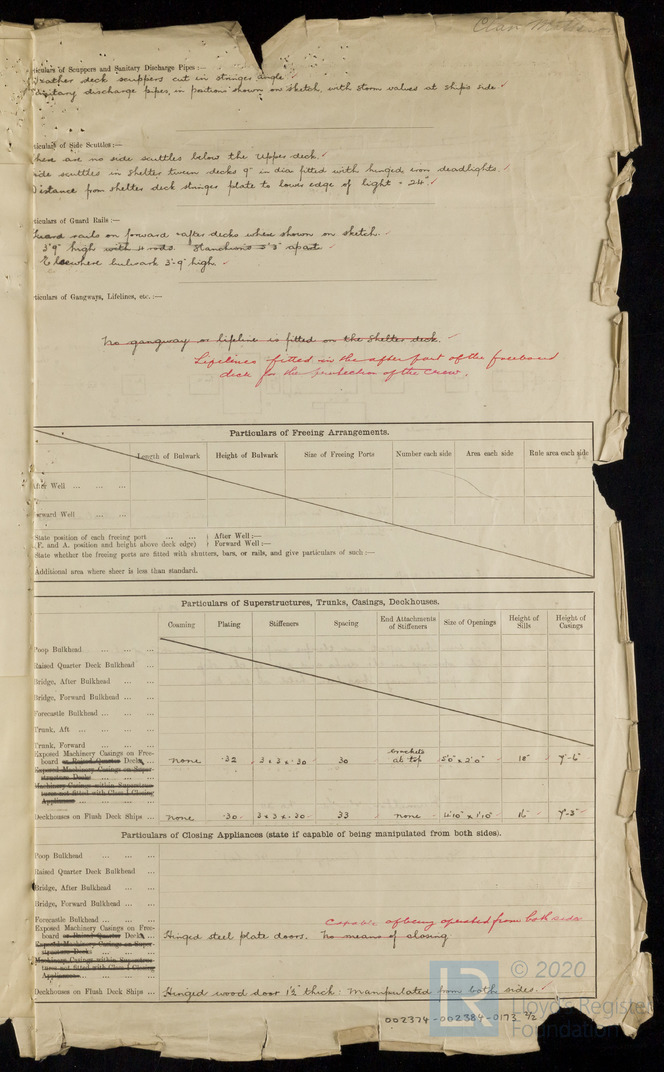 Clan
ticulars of Scuppers and Sanitary Discharge Pipes :—
Weather deck scuppers cut in stringer angle.
Sanitary discharge pipes, in positions shown on sketch, with storm valves at ship's side.
ticulars of Side Scuttles:—
There are no side scuttles below the upper deck.
Side scuttles in shelter tween decks 9" in dia fitted with hinged iron deadlights.
Distance from shelter deck stringer plate to lower edge of light = 24".
ticulars of Guard Rails :—
Guard rails on forward & after decks where shown on sketch.
3'9" high with 4 rods. Stanchions 5'3" apart
Elsewhere bulwark 3'-9" high.
ticulars of Gangways, Lifelines, etc. :—
No gangway or lifeline is fitted on the shelter deck.
Lifelines fitted in the after part of the freeboard
deck for the protection of the crew.
Particulars of Freeing Arrangements.
Length of Bulwark Height of Bulwark Size of Freeing Ports Number each side Area each side Rule area each side
After Well ... ... ...
Forward Well ... ...
State position of each freeing port ... ... } After Well :—
(F. and A. position and height above deck edge) } Forward Well :—
State whether the freeing ports are fitted with shutters, bars, or rails, and give particulars of such :—
Additional area where sheer is less than standard.
Particulars of Superstructures, Trunks, Casings, Deckhouses.
Coaming Plating Stiffeners Spacing End Attachments of Stiffeners Size of Openings Height of Sills Height of Casings
Poop Bulkhead ... ... ...
Raised Quarter Deck Bulkhead ...
Bridge, After Bulkhead ... ...
Bridge, Forward Bulkhead ... ...
Forecastle Bulkhead ... ... ...
Trunk, Aft ... ... ... ...
Trunk, Forward ... ... ...
Exposed Machinery Casings on Free-
board or Raised Quarter Decks ... none .32 3 x 3 x .30 30 brackets at top 5'0" x 2'0" 18" 7'-6"
Exposed Machinery Casings on Super-
structure Decks ... ... ...
Machinery Casings within Superstruc-
tures not fitted with Class I Closing
Appliances ... ... ... ...
Deckhouses on Flush Deck Ships ... none .30 3 x 3 x .30 33 none 4'10" x 1'10" 7'-3"
Particulars of Closing Appliances (state if capable of being manipulated from both sides).
Poop Bulkhead ... ... ...
Raised Quarter Deck Bulkhead ...
Bridge, After Bulkhead ... ...
Bridge, Forward Bulkhead ... ...
Forecastle Bulkhead ... ... ...
Capable of being operated from both sides
Exposed Machinery Casings on Free-
board or Raised Quarter Decks ... Hinged steel plate doors. No means of closing
Exposed Machinery Casings on Super-
structure Decks ... ... ...
Machinery Casings within Superstruc-
tures not fitted with Class I Closing
Appliances ... ... ... ...
Deckhouses on Flush Deck Ships ... Hinged wood door 1½" thick: Manipulated from both sides.
LR
© 2020
Lloyd's Register
Foundation
002374-002384-0173 2/2